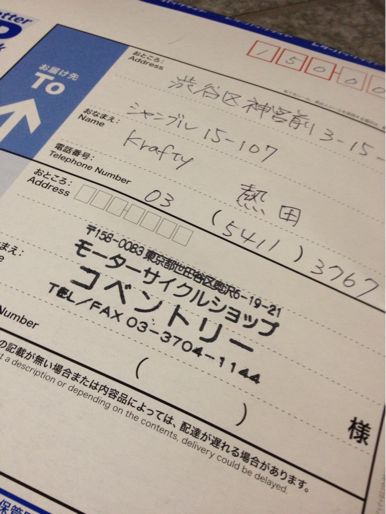 etter
お届け先
To
おところ:
Address
15000
渋谷区神宮前3-15-
シャンブル15-107
おなまえ:
Name
Krafty
熱田
電話番号:
Telephone Number
03 (5411) 3767
様
おところ:
Address
〒158-0083 東京都世田谷区奥沢6-19-21
モーターサイクルショップ
コベントリー
TEL/FAX 03-3704-1144
まえ:
Number
( )
の記載が無い場合または内容品によっては、配達が遅れる場合があります。
t a description or depending on the contents, delivery could be delayed.
保管